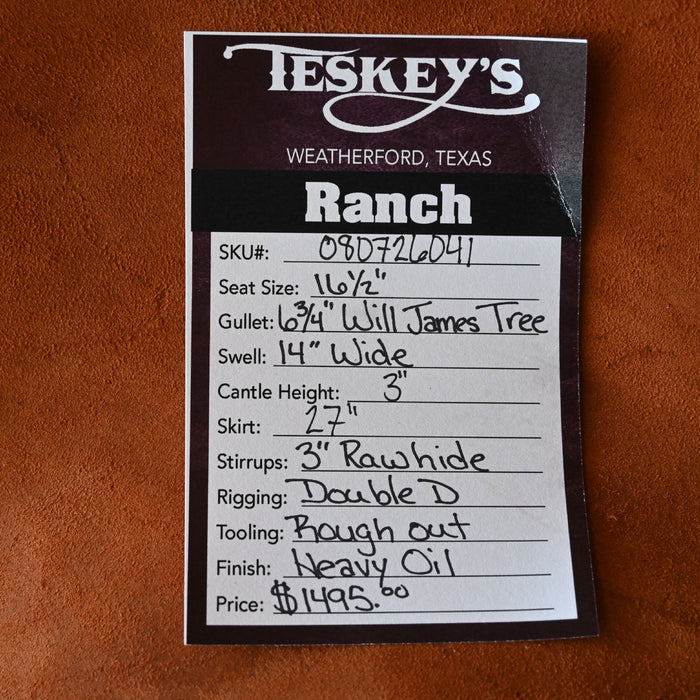 TESKEY'S
WEATHERFORD, TEXAS
Ranch
SKU#: 080726041
Seat Size: 16½"
Gullet: 6¾" Will James Tree
Swell: 14" Wide
Cantle Height: 3"
Skirt: 27"
Stirrups: 3" Rawhide
Rigging: Double D
Tooling: Rough out
Finish: Heavy Oil
Price: $1495.00